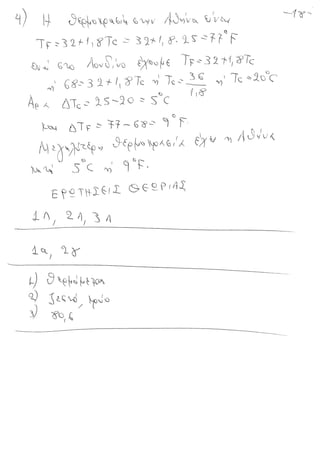 -18-
4) Η θερμοκρασία στην Αθήνα είναι
TF=32+1,8Tc = 32+1,8·25=77°F
Ενώ στο Λονδίνο έχουμε TF=32+1,8Tc
ή 68=32+1,8Tc ή Tc=36/1,8 ή Tc=20°C
Άρα ΔTc=25-20=5°C
και ΔTF=77-68=9°F.
Μεγαλύτερη θερμοκρασία έχει η Αθήνα
κατά 5°C ή 9°F.
ΕΡΩΤΗΣΕΙΣ ΘΕΩΡΙΑΣ
1Λ, 2Λ, 3Λ
1α, 2γ
1) Θερμόμετρα
2) Ζεστό, κρύο
3) 80,6